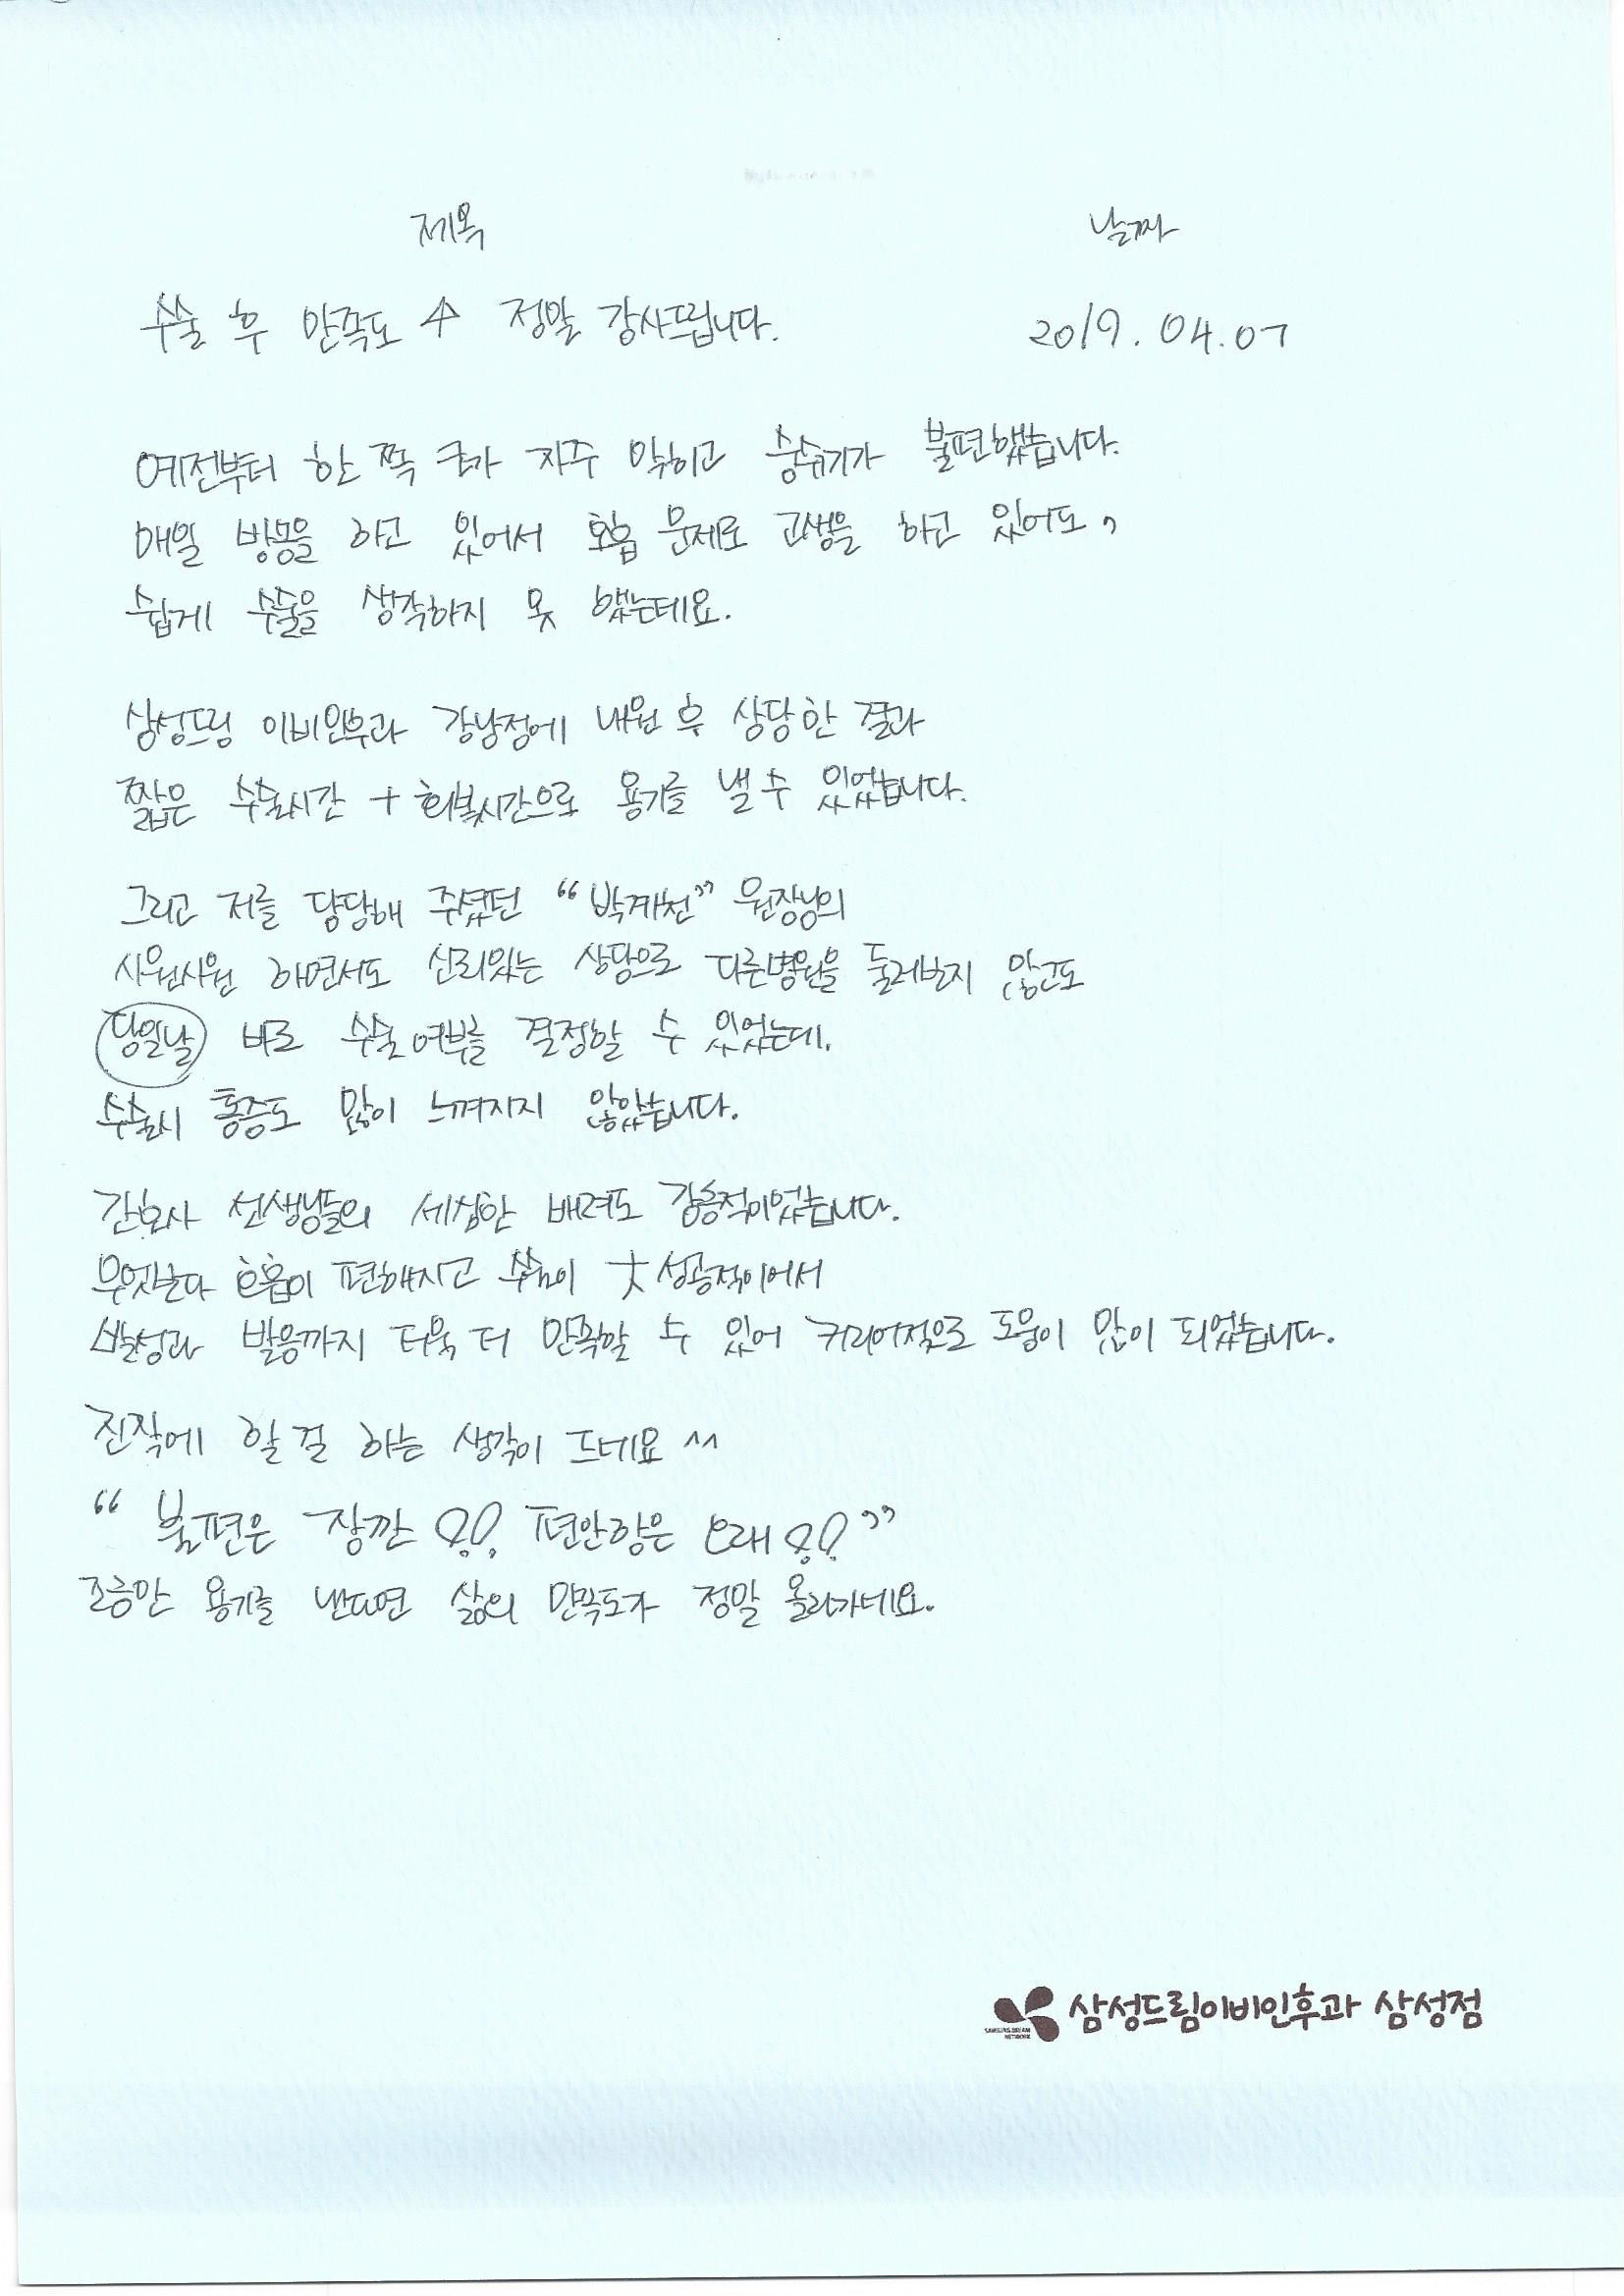 제목 날짜
수술 후 만족도 ↑ 정말 감사드립니다. 2019.04.07
예전부터 한 쪽 코가 자주 막히고 숨쉬기가 불편했습니다.
매일 방송을 하고 있어서 호흡 문제로 고생을 하고 있어도,
쉽게 수술을 생각하지 못 했는데요.
삼성드림 이비인후과 강남점에 내원 후 상담한 결과
짧은 수술시간 + 회복시간으로 용기를 낼 수 있었습니다.
그리고 저를 담당해 주셨던 "박계천" 원장님의
시원시원 하면서도 신뢰있는 상담으로 다른병원을 둘러보지 않고도
당일날 바로 수술여부를 결정할 수 있었는데.
수술시 통증도 많이 느껴지지 않았습니다.
간호사 선생님들의 세심한 배려도 감동적이었습니다.
무엇보다 호흡이 편해지고 수술이 大성공적이어서
발성과 발음까지 더욱 더 만족할 수 있어 커리어적으로 도움이 많이 되었습니다.
진작에 할 걸 하는 생각이 드네요 ^^
"불편은 잠깐!! 편안함은 오래!!"
조금만 용기를 낸다면 삶의 만족도가 정말 올라가네요.
삼성드림이비인후과 삼성점
SAMSUNG DREAM
NETWORK